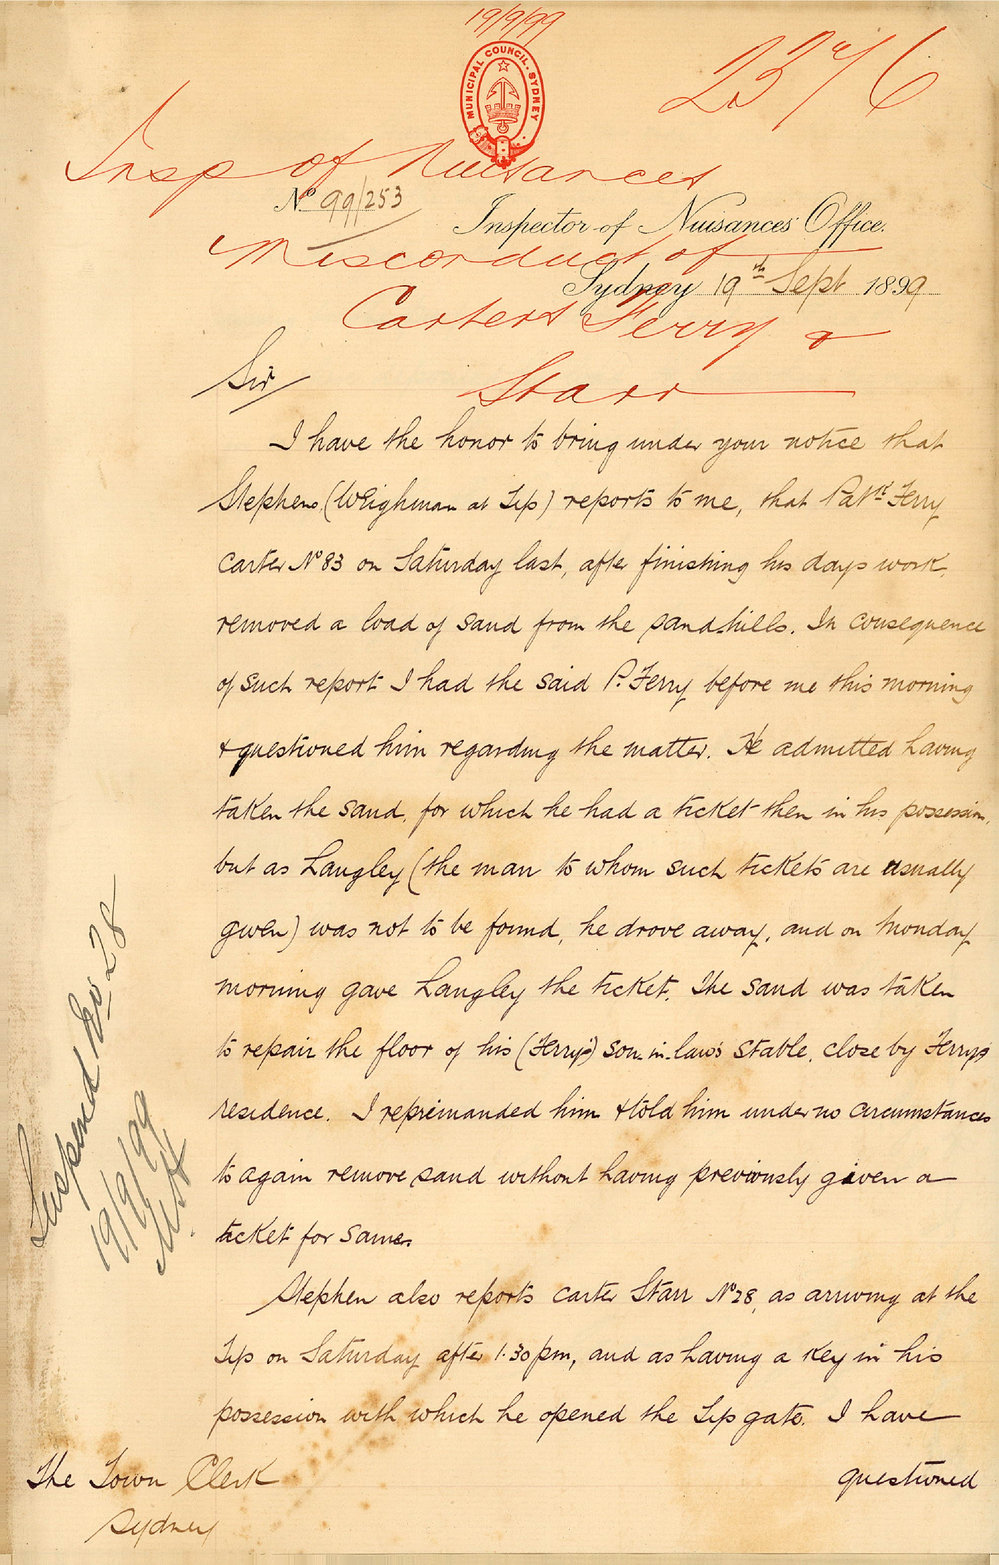 19/9/99
MUNICIPAL COUNCIL. SYDNEY
2376
Insp of Nuisances
No 99/253
Inspector of Nuisances' Office.
Misconduct of
Sydney 19th Sept 1899
Carters Ferry &
Starr
Sir
I have the honor to bring under your notice that
Stephens, (Weighman at Tip) reports to me, that Patk Ferry
Carter No 83 on Saturday last, after finishing his days work,
removed a load of sand from the sand-hills. In consequence
of such report I had the said P. Ferry before me this morning
& questioned him regarding the matter. He admitted having
taken the sand, for which he had a ticket then in his possession,
but as Langley (the man to whom such tickets are usually
given) was not to be found, he drove away, and on Monday
morning gave Langley the ticket. The sand was taken
to repair the floor of his (Ferry's) son-in-law's stable, close by Ferrys
residence. I reprimanded him & told him under no circumstances
to again remove sand without having previously given a
ticket for same.
Stephen also reports carter Starr No 28, as arriving at the
Tip on Saturday after 1.30 pm, and as having a key in his
possession with which he opened the Tip gate. I have
questioned
The Town Clerk
Sydney
Suspend No 28
19/9/99